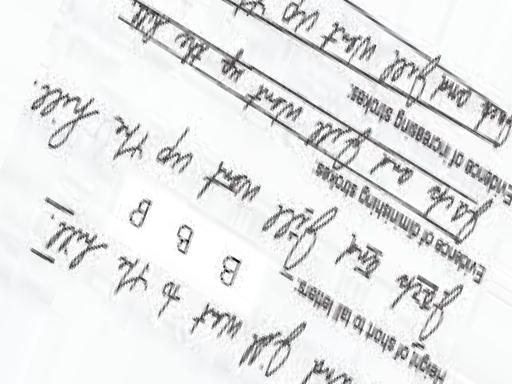 and Jill went the hill.
Height of short to tall letters.
B B B
Jack and Jill went up the hill.
Evidence of diminishing strokes
Jack and Jill went up the hill
Evidence of increasing strokes.
Jack and Jill went up